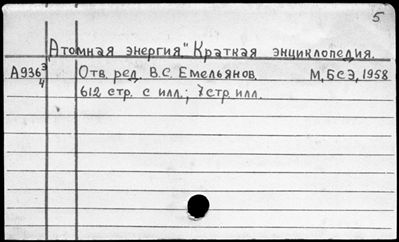 5
„Атомная энергия." Краткая энциклопедия.
А936 Э/4 Отв. ред. В.С. Емельянов. М, БСЭ, 1958
612 стр. с илл.; 7 стр. илл.